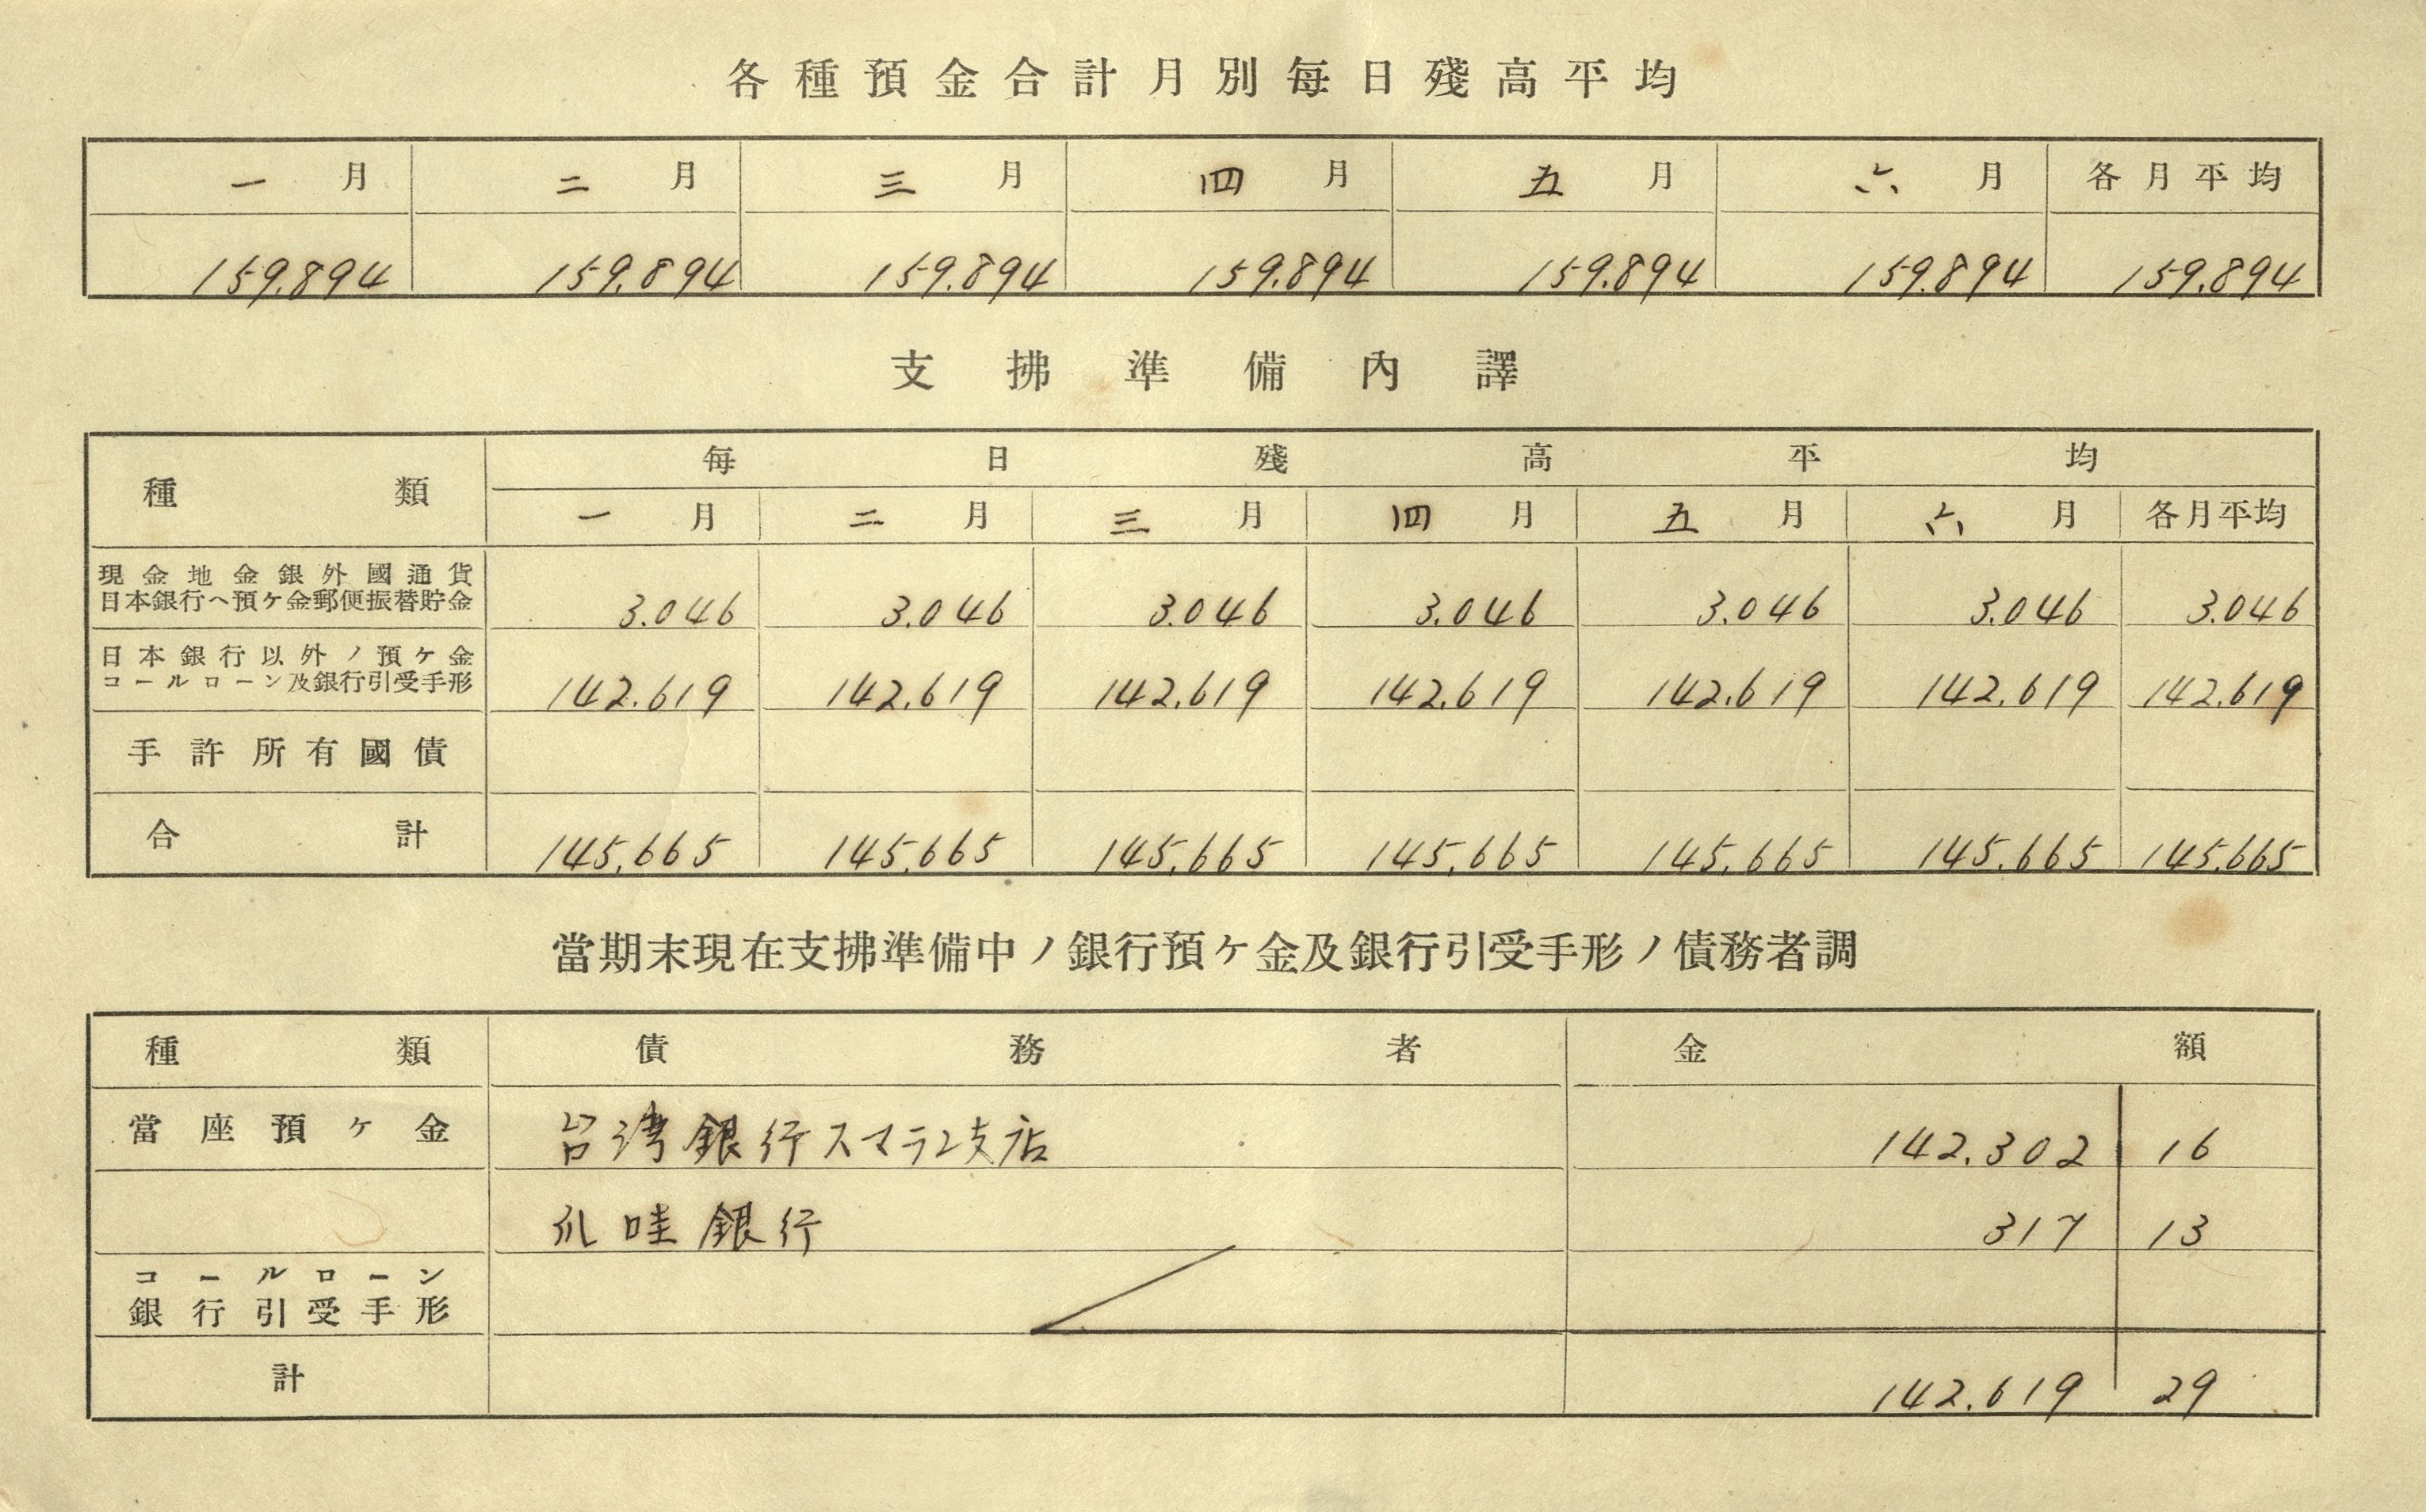 各種預金合計月別每日殘高平均
一月 二月 三月 四月 五月 六月 各月平均
159.894 159.894 159.894 159.894 159.894 159.894 159.894
支拂準備內譯
種類 每日殘高平均
一月 二月 三月 四月 五月 六月 各月平均
現金地金銀外國通貨
日本銀行ヘ預ケ金郵便振替貯金
3.046 3.046 3.046 3.046 3.046 3.046 3.046
日本銀行以外ノ預ケ金
コールローン及銀行引受手形
142.619 142.619 142.619 142.619 142.619 142.619 142.619
手許所有國債
合計 145.665 145.665 145.665 145.665 145.665 145.665 145.665
當期末現在支拂準備中ノ銀行預ケ金及銀行引受手形ノ債務者調
種類 債務者 金額
當座預ケ金 台湾銀行スマラン支店 142.302 16
爪哇銀行 317 13
コールローン
銀行引受手形
計 142.619 29